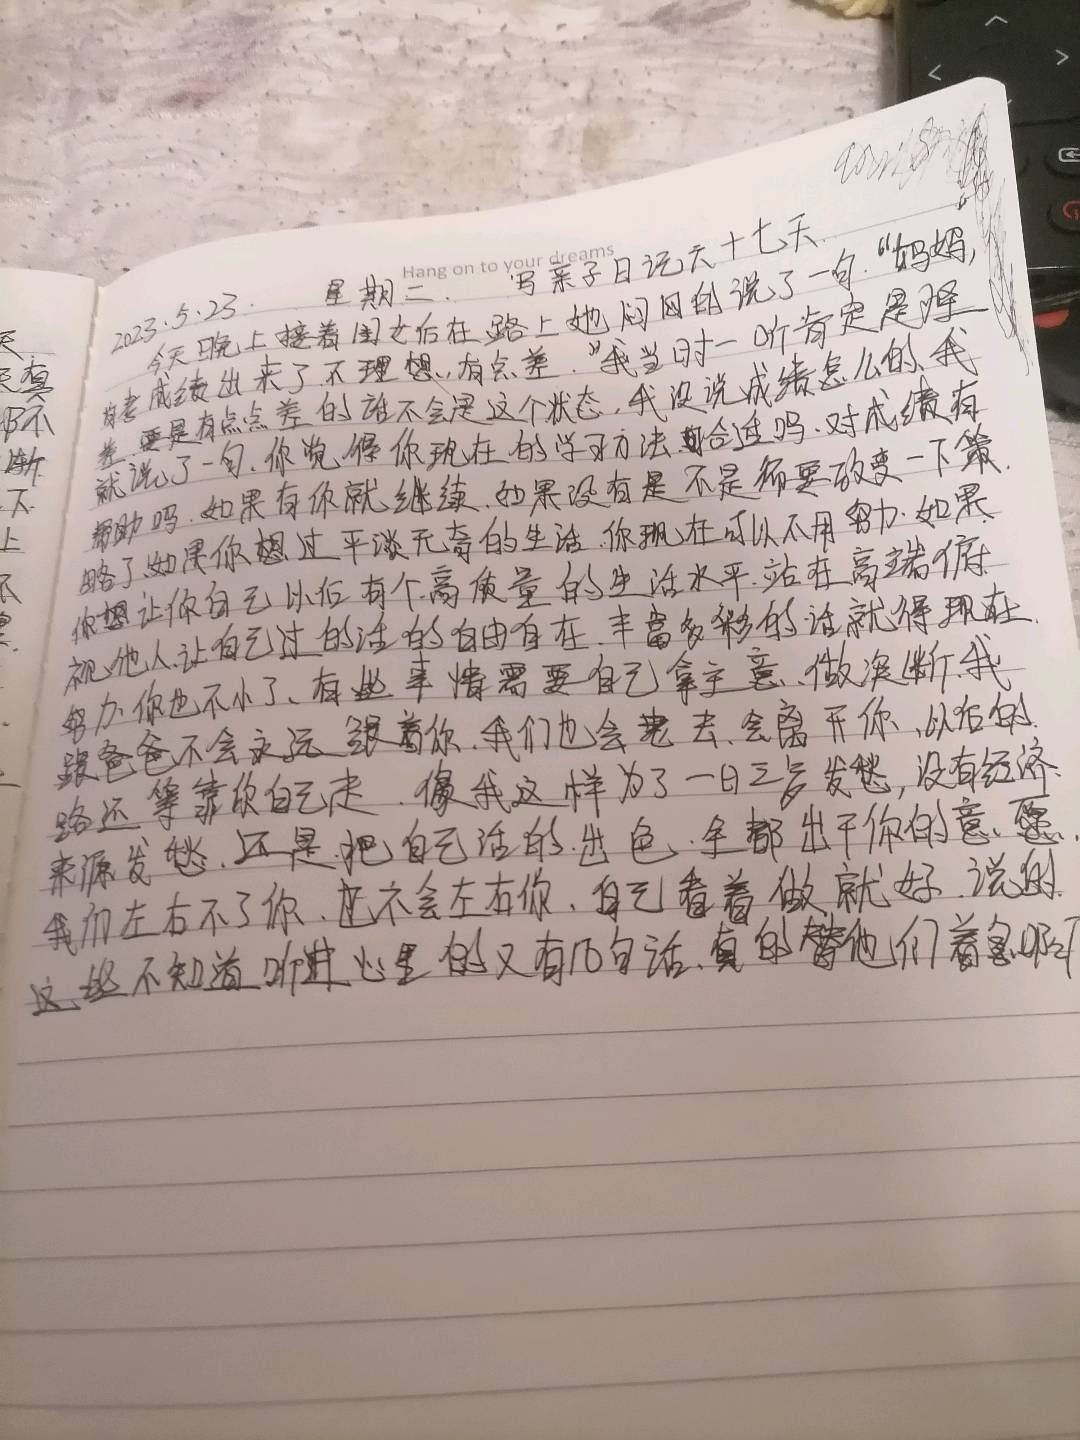 Hang on to your dreams
2023.5.23. 星期二. 写亲子日记六十七天
今天晚上接着闺女后在路上她闷闷的说了一句.“妈妈,
成绩出来了.不理想.有点差.”我当时一听肯定是
差.要是有点点差的话不会是这个状态.我没说成绩怎么的.我
就说了一句.你觉得你现在的学习方法适合吗.对成绩有
帮助吗.如果有你就继续.如果没有是不是需要改变一下策
略了.如果你想过平淡无奇的生活.你现在可以不用努力.如果
你想让你自己以后有个高质量的生活水平.站在高端俯
视他人.让自己过的活的自由自在.丰富多彩的话就得现在
努力.你也不小了、有些事情需要自己拿主意、做决断.我
跟爸爸不会永远跟着你.我们也会老去.会离开你、以后的
路还等靠你自己走.像我这样为了一日三岁发愁,没有经济
来源发愁.还是把自己活的出色.全都出于你的意愿.
我们左右不了你、也不会左右你、自己看着做就好.说的
这些不知道听进心里的又有几句话、真的替他们着急啊
真
不
渐
下
上
不